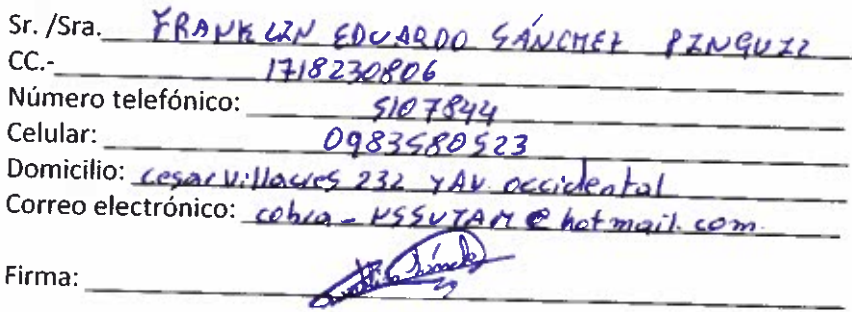 Sr. /Sra. FRANKLIN EDUARDO SÁNCHEZ PINGUIL
CC.- 1718230806
Número telefónico: 5107844
Celular: 0983580523
Domicilio: cesar Villacres 232 y AV. occidental
Correo electrónico: @hotmail.com
Firma: